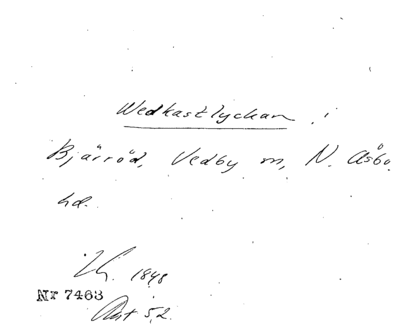 Wedkastlyckan i
Bjärröd, Vedby sn, N. Åsbo
hd.
1848
Nr 7463
Akt 52.